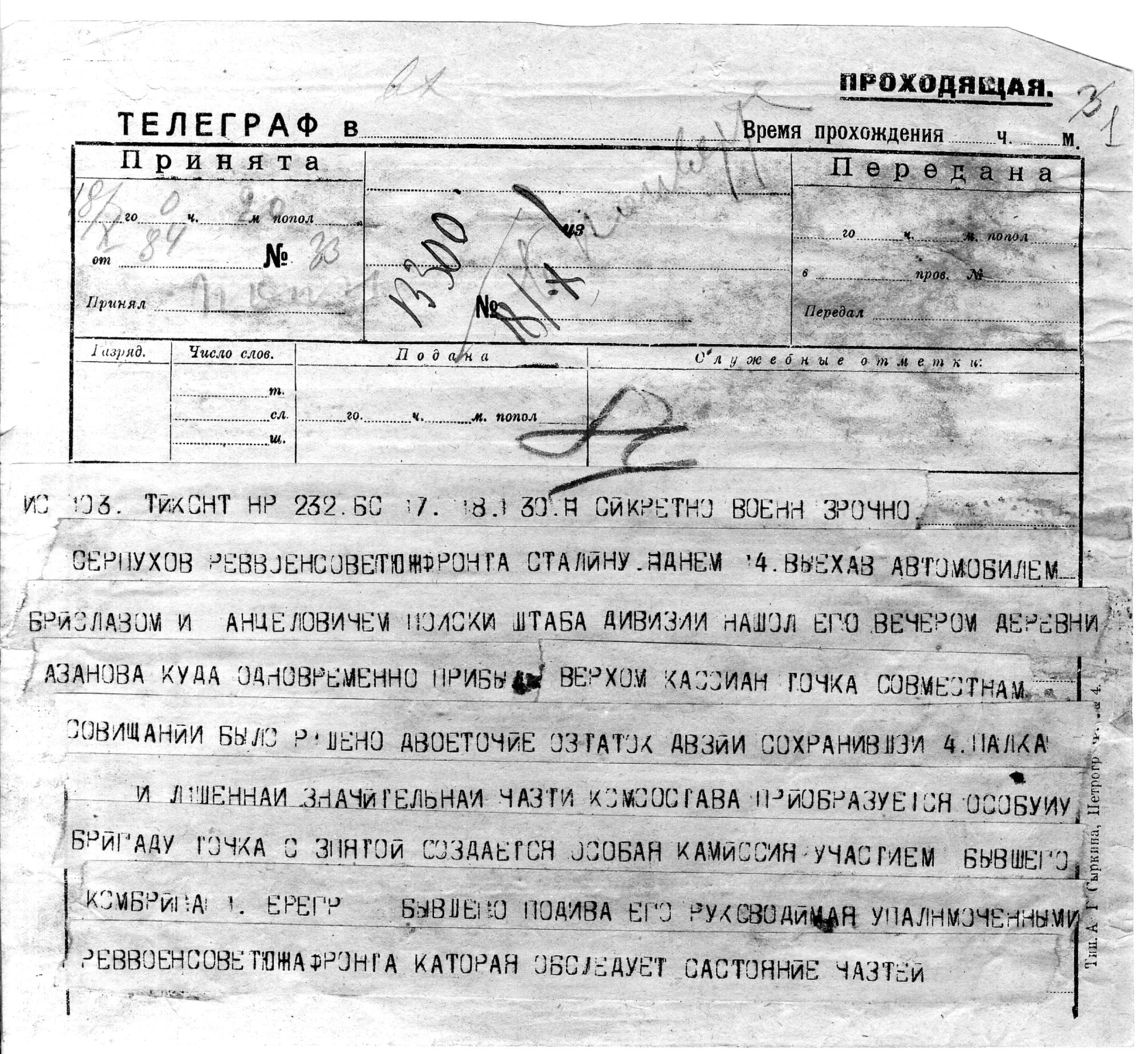 ПРОХОДЯЩАЯ.
ТЕЛЕГРАФ в Время прохождения ч. м.
Принята
Передана
18/X го 0 ч. 20 м попол
из
го ч. м. попол
от 84 № 33
в пров. №
13300
№ 18/X
Принял
Передал
Разряд. Число слов. Подана Служебные отметки:
т.
сл. го. ч. м. попол
ш.
ИС 103. ТИКСНТ НР 232.БС 17. 18.1 30.Я СЙКРЕТНО ВОЕНН ЗРОЧНО
СЕРПУХОВ РЕВВОЕНСОВЕТЮЖФРОНГА СТАЛЙНУ.ЯДНЕМ 14.ВЫЕХАВ АВТОМОБИЛЕМ
БРЙСЛАВОМ И АНЦЕЛОВИЧЕМ ПОИСКИ ШТАБА ДИВИЗЛИ НАШОЛ ЕГО ВЕЧЕРОМ ДЕРЕВНИ
АЗАНОВА КУДА ОДНОВРЕМЕННО ПРИБЫ ВЕРХОМ КАССИАН ТОЧКА СОВМЕСТНАМ
СОВИЩАНЙИ БЫЛО РШЕНО ДВОЕТОЧЙЕ ОЗТАТОК ДВЗЙИ СОХРАНИВШЗИ 4.ПАЛКА
И ЛИШЕННАИ ЗНАЧЙТЕЛЬНАИ ЧАЗТИ КОМСОСТАВА ПРЙОБРАЗУЕТСЯ ОСОБУИУ
БРЙГАДУ ТОЧКА С ЗПЯТОЙ СОЗДАЕТСЯ ОСОБАЯ КАМИССИЯ УЧАСТИЕМ БЫВШЕГО
ЕРЕГР БЫВШЕНО ПОДИВА ЕГО РУКСВОДЙМАЯ УПАЛНМОЧЕННЫМИ
РЕВВОЕНСОВЕТЮЖАФРОНГА КАТОРАЯ ОБСЛЕДУЕТ САСТОЯНЙЕ ЧАЗТЕЙ